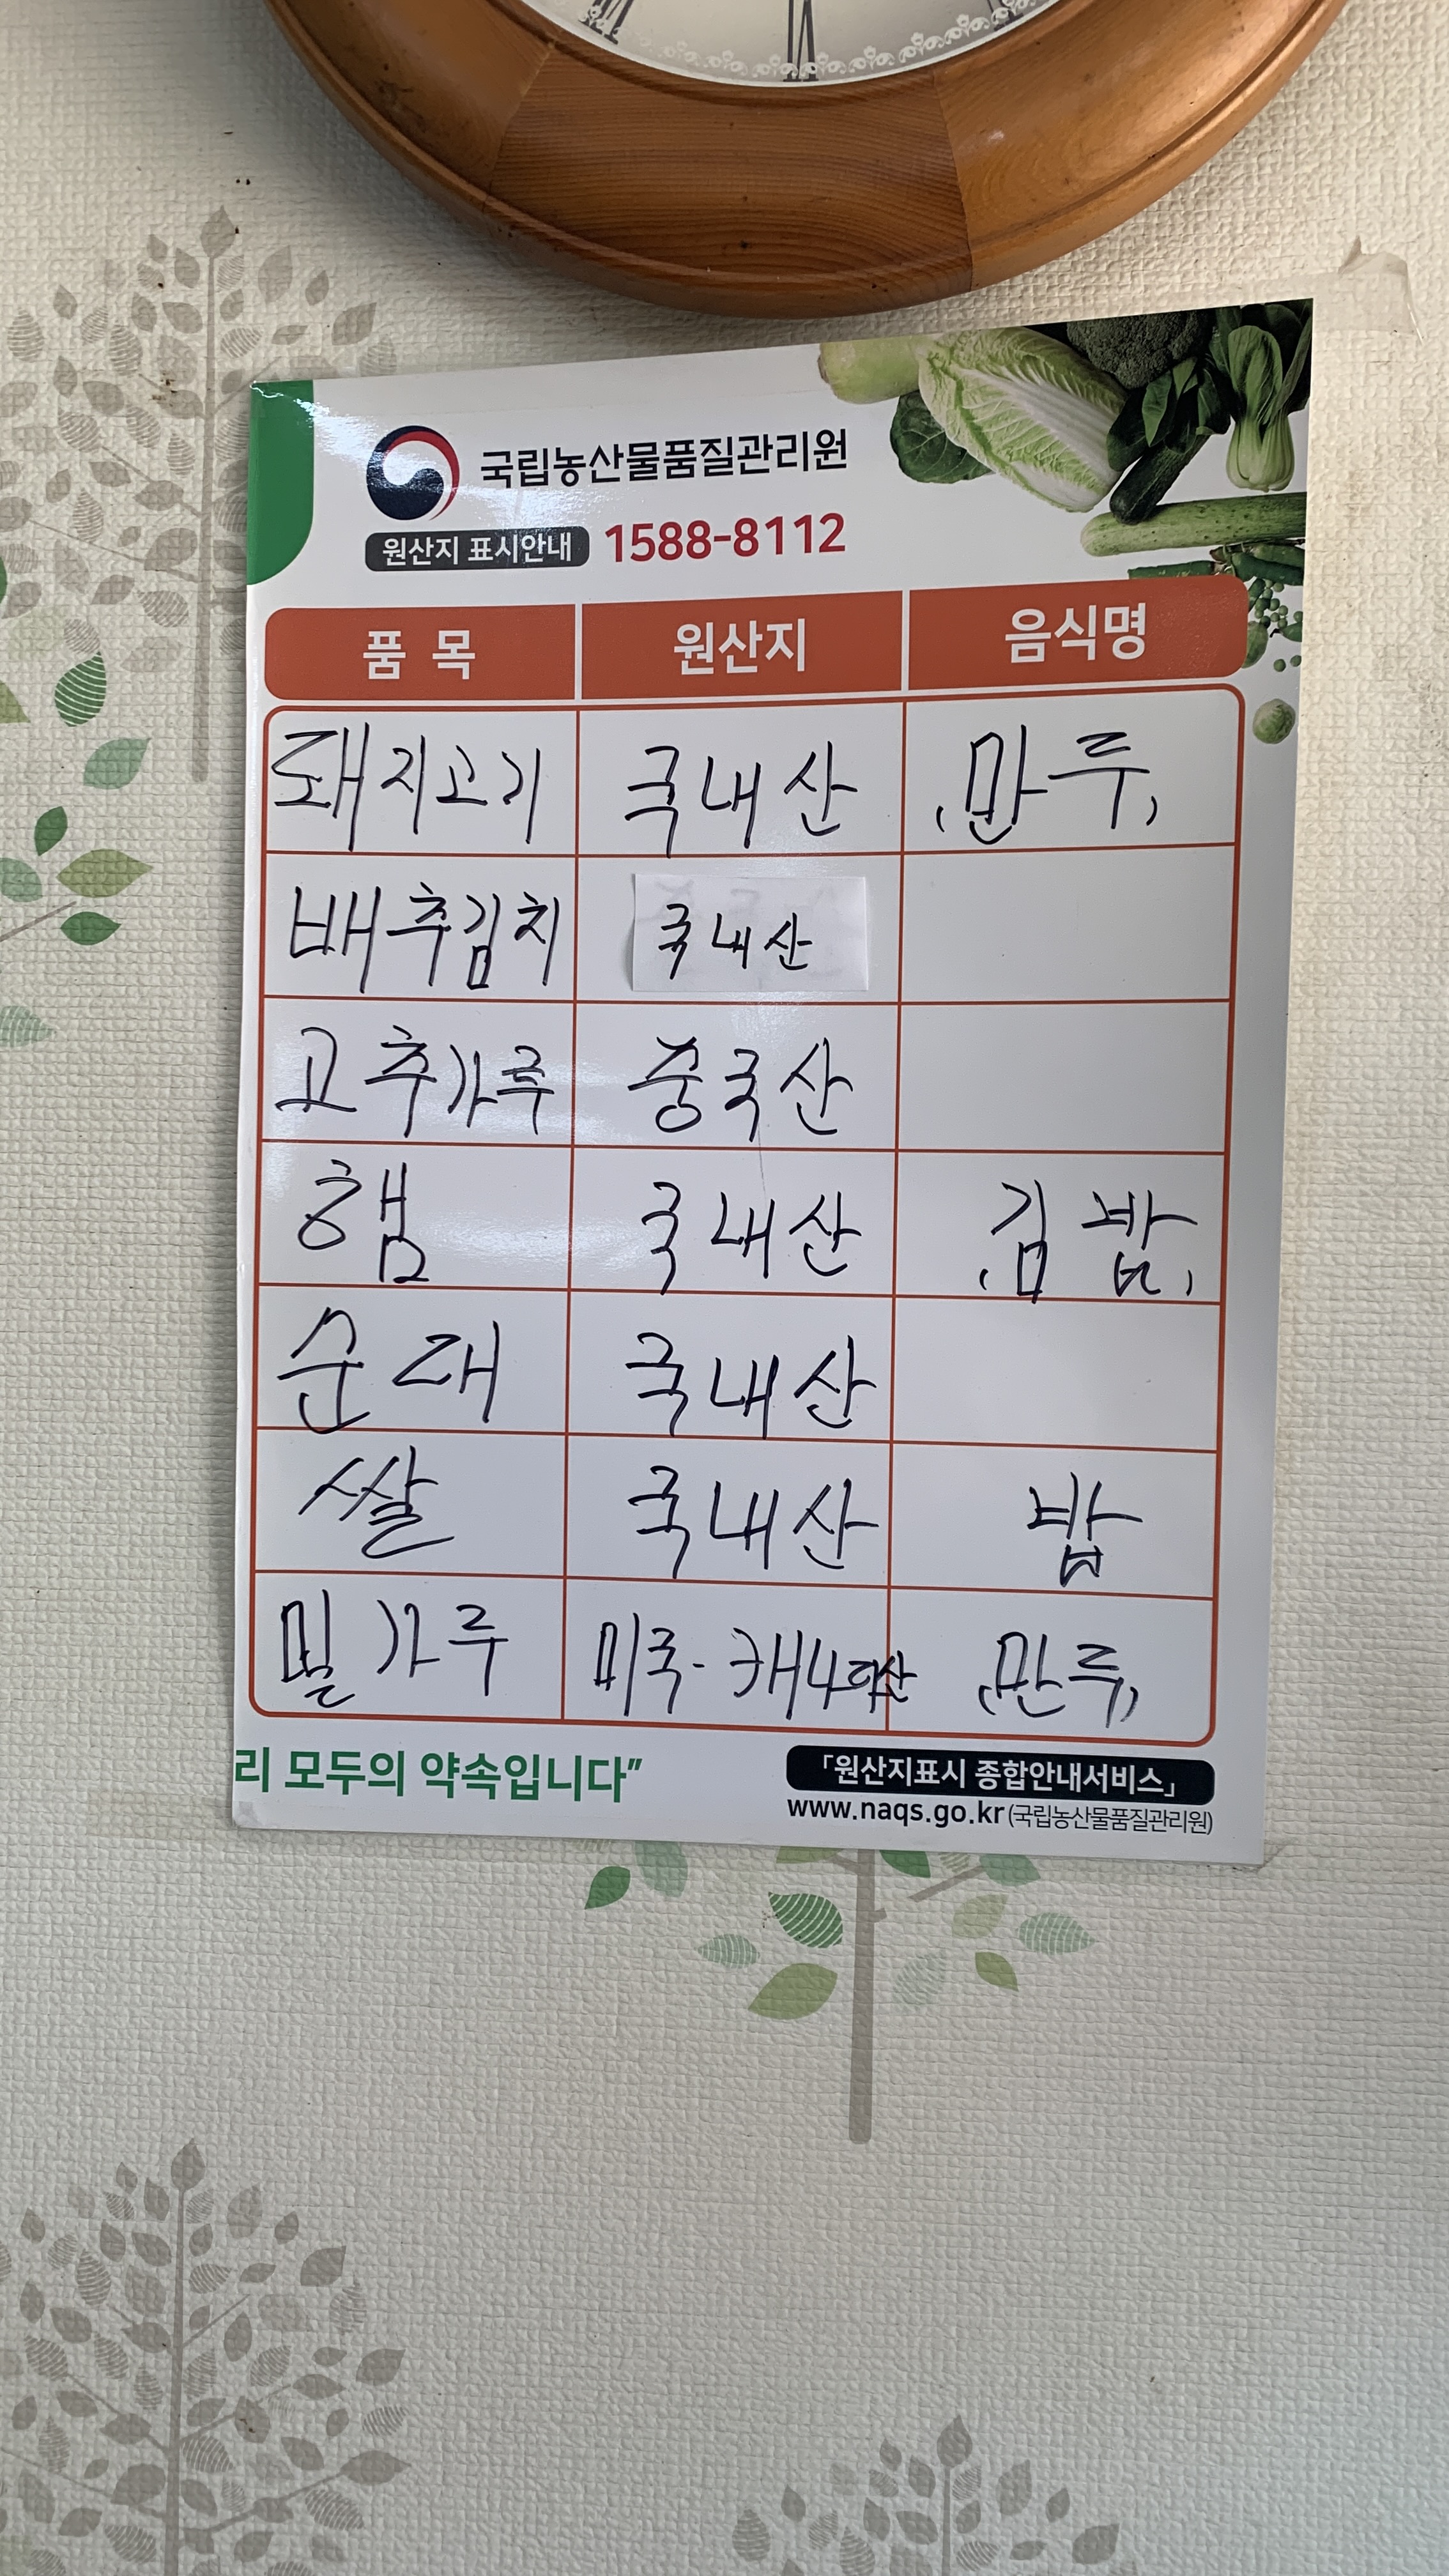 국립농산물품질관리원
원산지 표시안내 1588-8112
품 목 원산지 음식명
돼지고기 국내산 (만두)
배추김치 국내산
고추가루 중국산
햄 국내산 (김밥)
순대 국내산
쌀 국내산 밥
밀가루 미국-캐나다산 (만두)
리 모두의 약속입니다”
「원산지표시 종합안내서비스」
www.naqs.go.kr(국립농산물품질관리원)